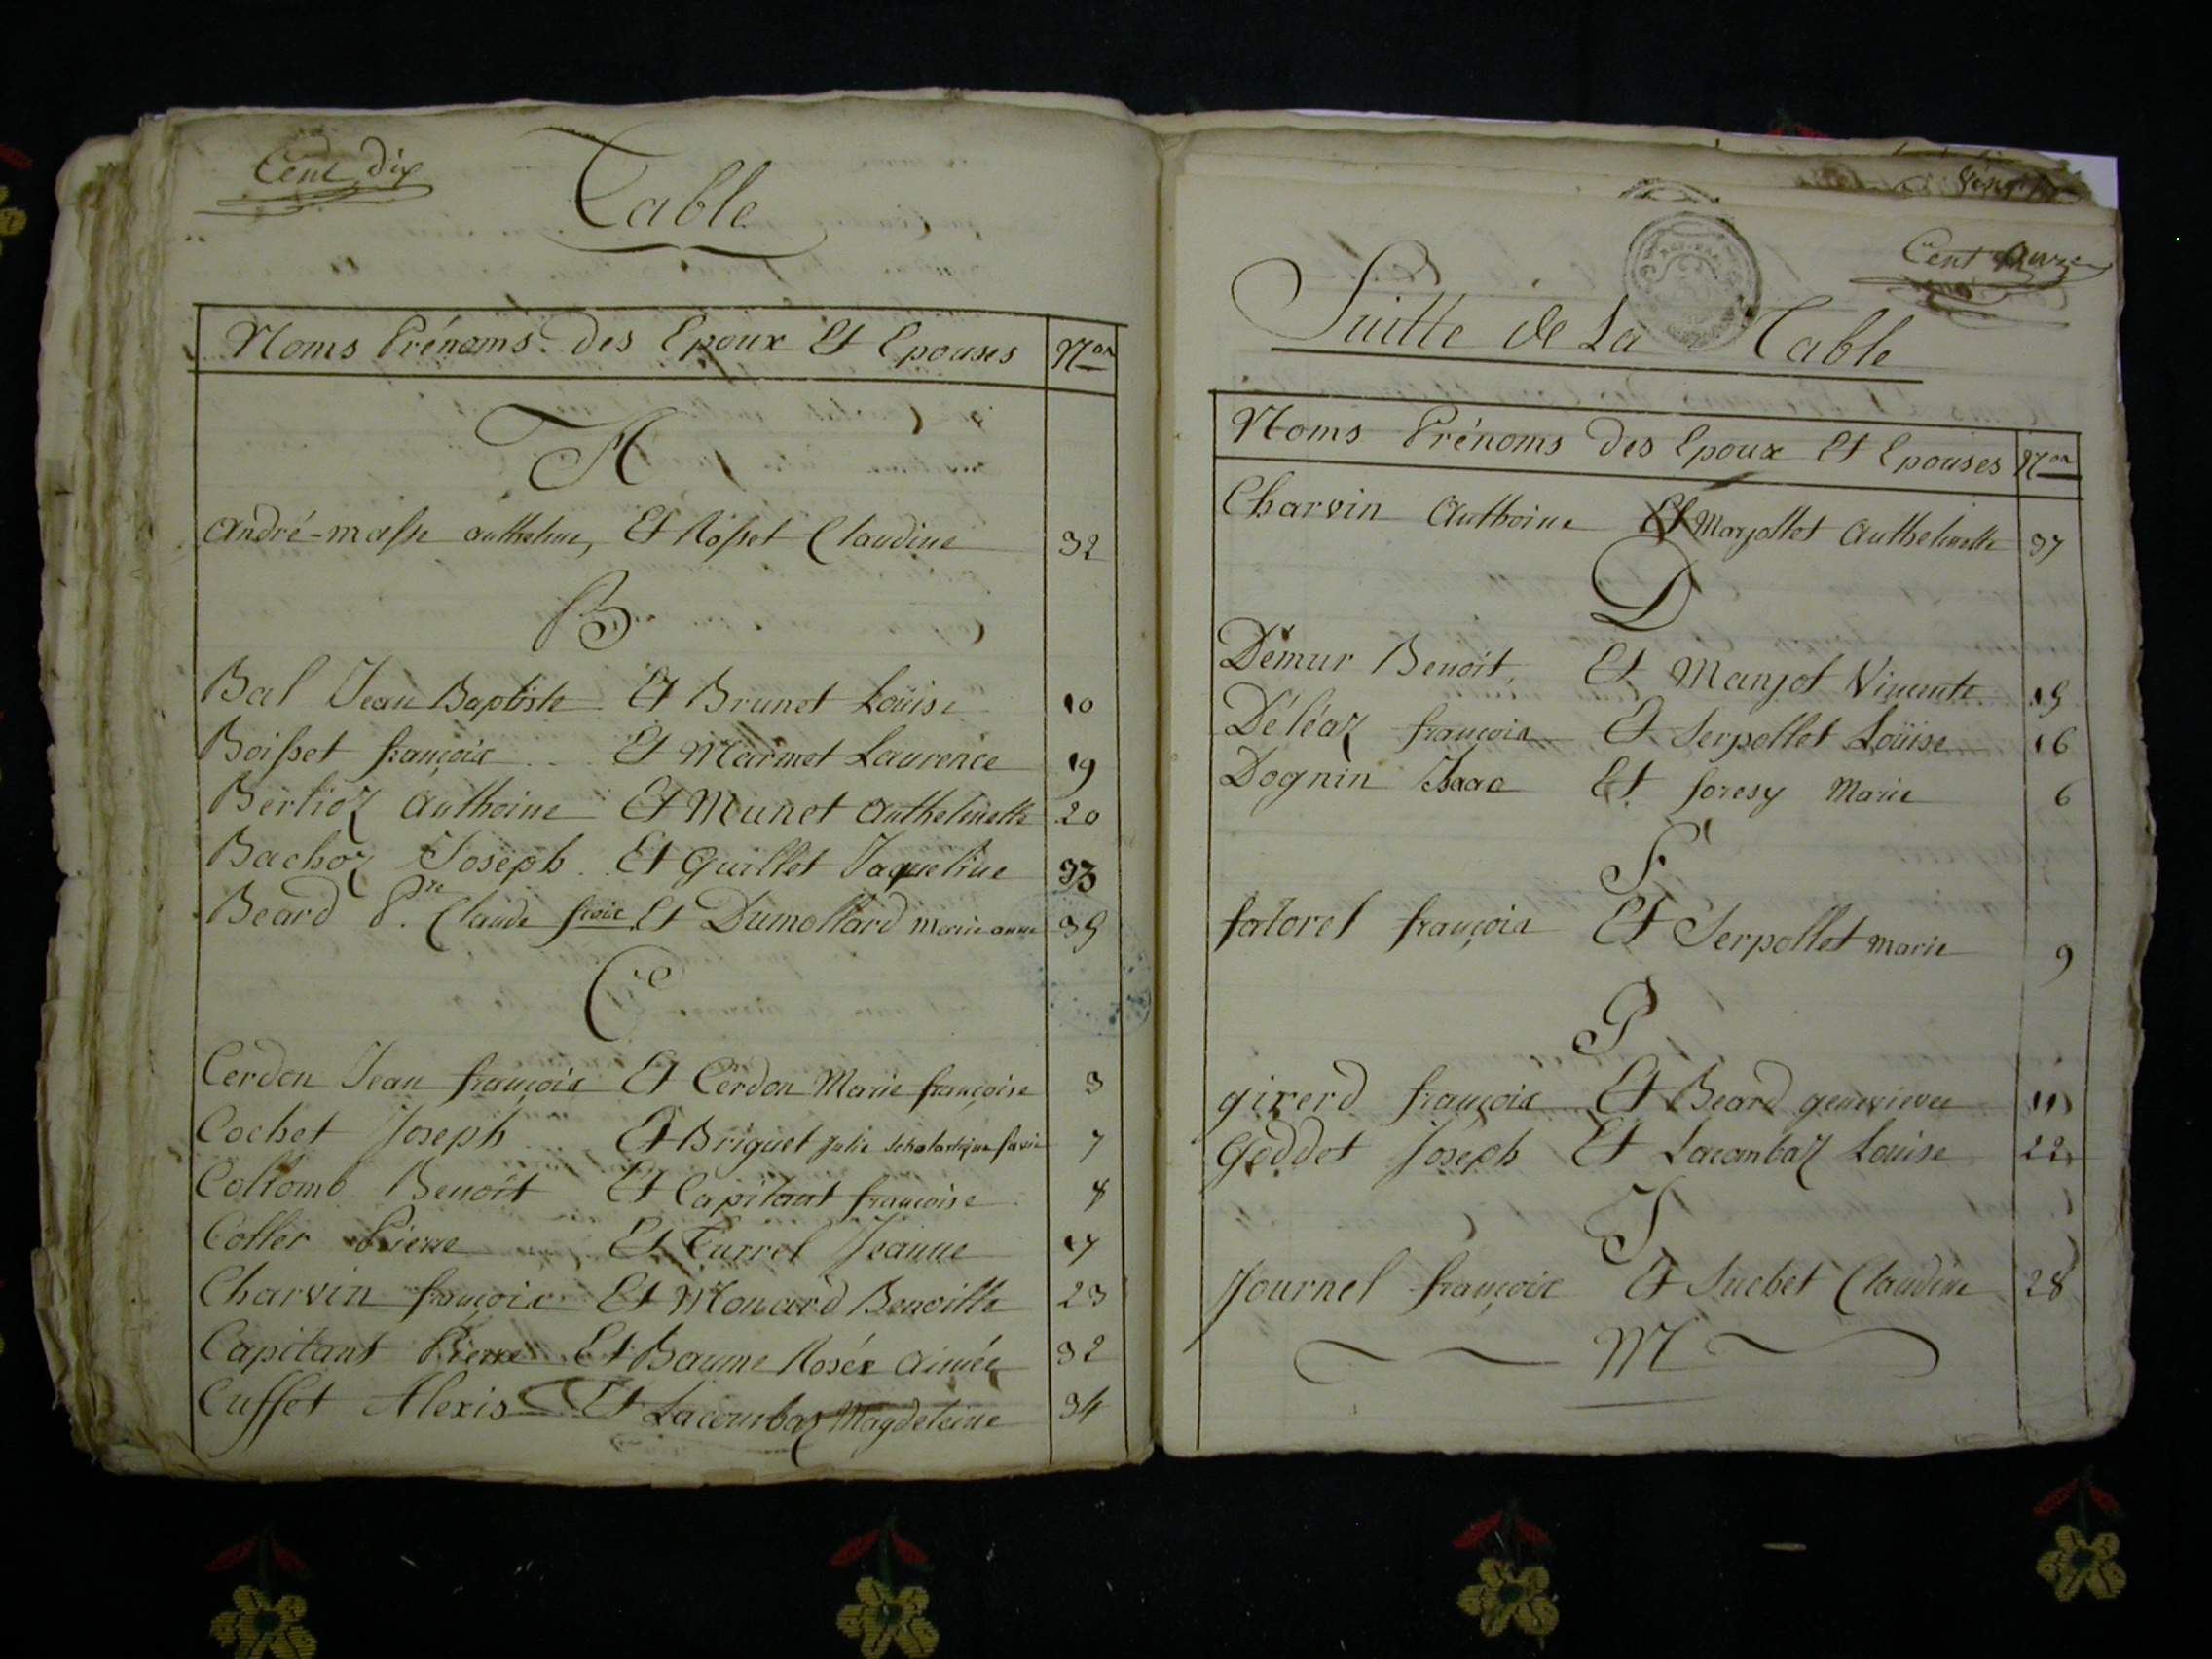 Cent dix
Table
Noms Prénoms des Epoux Et Epouses Nos
A
André-masse anthelme, Et Rosset Claudine 32
B
Bal Jean Baptiste Et Brunet Loüise 10
Boisset françois Et Marmet Laurence 19
Berlioz Anthoine Et Munet Anthelmette 20
Bachoz Joseph Et Guillet Jaqueline 33
Beard Pre. Claude fcois Et Dumollard Marie anne 35
C
Cerdon Jean françois Et Cerdon Marie françoise 3
Cochet Joseph Et Briguet Julie Scholastique 7
Collomb Benoit Et Capitant françoise 8
Coller Pierre Et Turrel Jeanne 17
Charvin françois Et Monard Benoitte 23
Capitant Pierre Et Baume Rosée Aimée 32
Cusset Alexis Et Lacombaz Magdeleine 34
Cent onze
Suitte de La Table
Noms Prénoms des Epoux Et Epouses Nos
Charvin Anthoine Et Marjollet Anthelmette 37
D
Démur Benoit, Et Manjot Vincente 15
Déléaz françois Et Serpollet Loüise 16
Dognin Isaac Et foresy Marie 6
F
fatoret françois Et Serpollet marie 9
G
girerd françois Et Beard genevieve 11
Goddet Joseph Et Lacombaz Louise 22
J
Journel françois Et Suchet Claudine 28
M